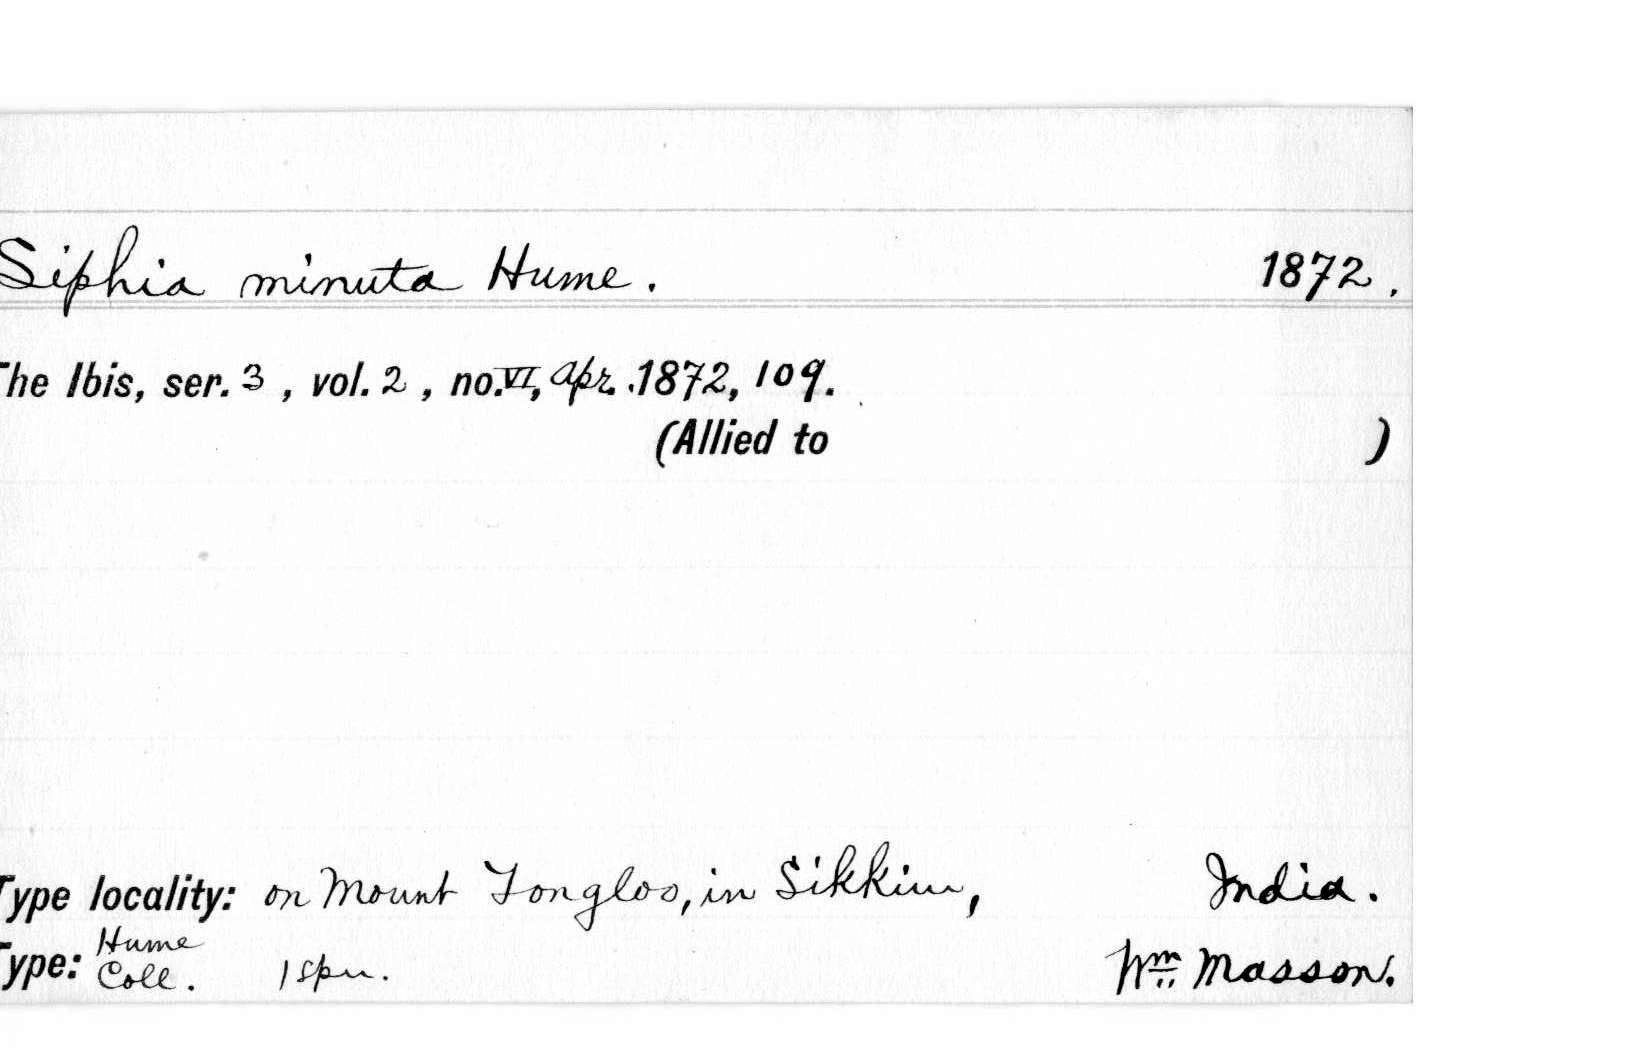 Siphia minuta Hume. 1872.
The Ibis, ser. 3, vol. 2, no. VI, Apr. 1872, 109.
(Allied to )
Type locality: on Mount Tongloo, in Sikkim, India.
Type: Hume Coll. 1 spn. Wm Masson.